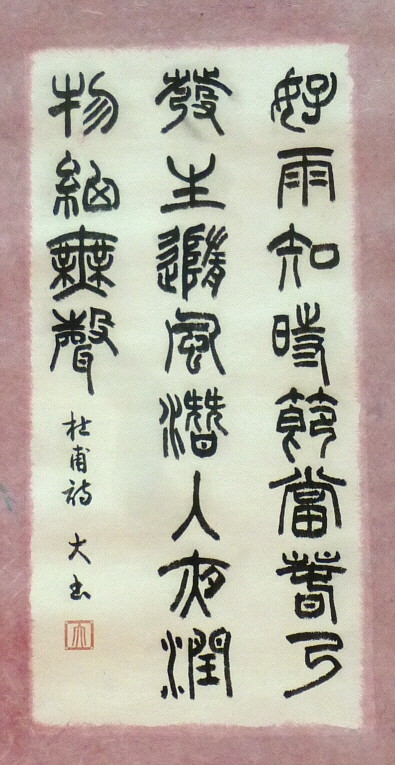 好雨知時節當春乃
發生隨風潛入夜潤
物細無聲
杜甫詩 大书
大